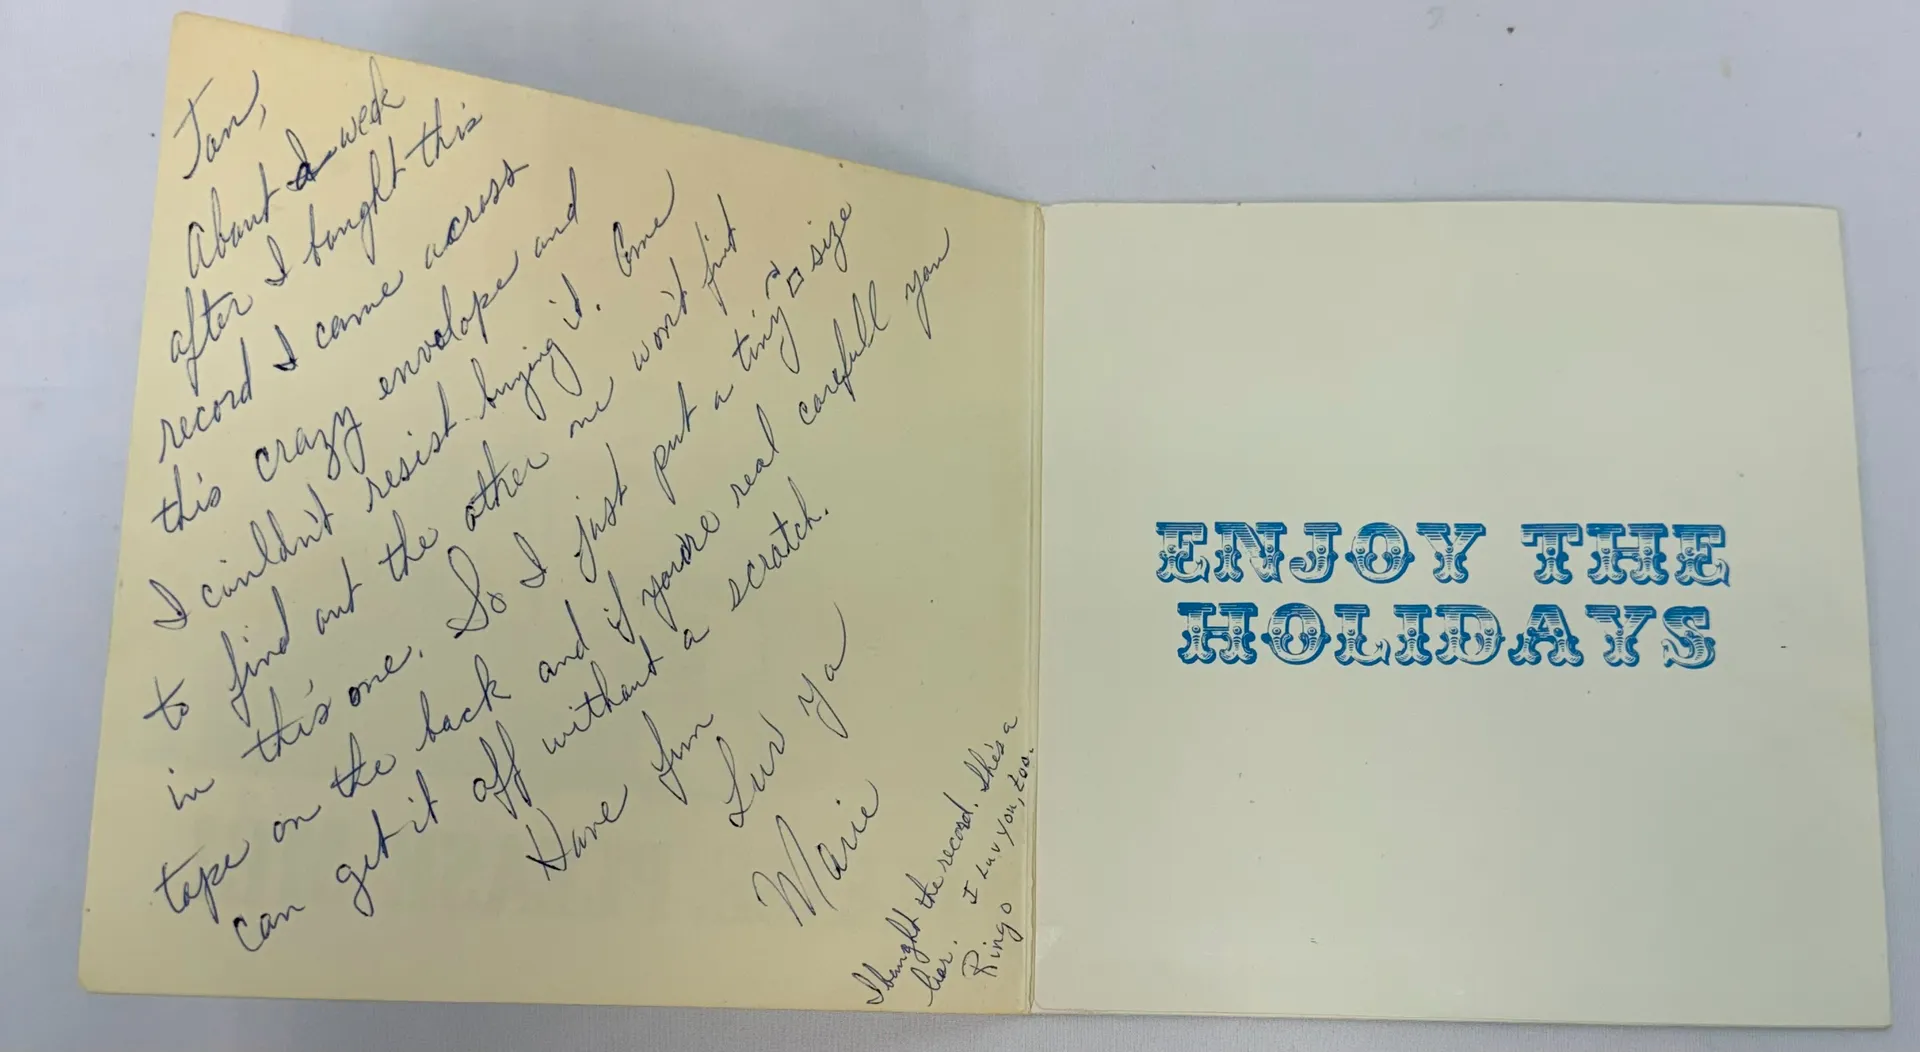 Jan,
About a week
after I bought this
record I came across
this crazy envelope and
I couldn't resist buying it. Come
to find out the other one won't fit
in this one. So I just put a tiny □ size
tape on the back and if you're real carefull you
can get it off without a scratch.
Have fun
Luv ya
Marie
I bought the record. She's a
liar. I Luv You, too.
Ringo
ENJOY THE
HOLIDAYS